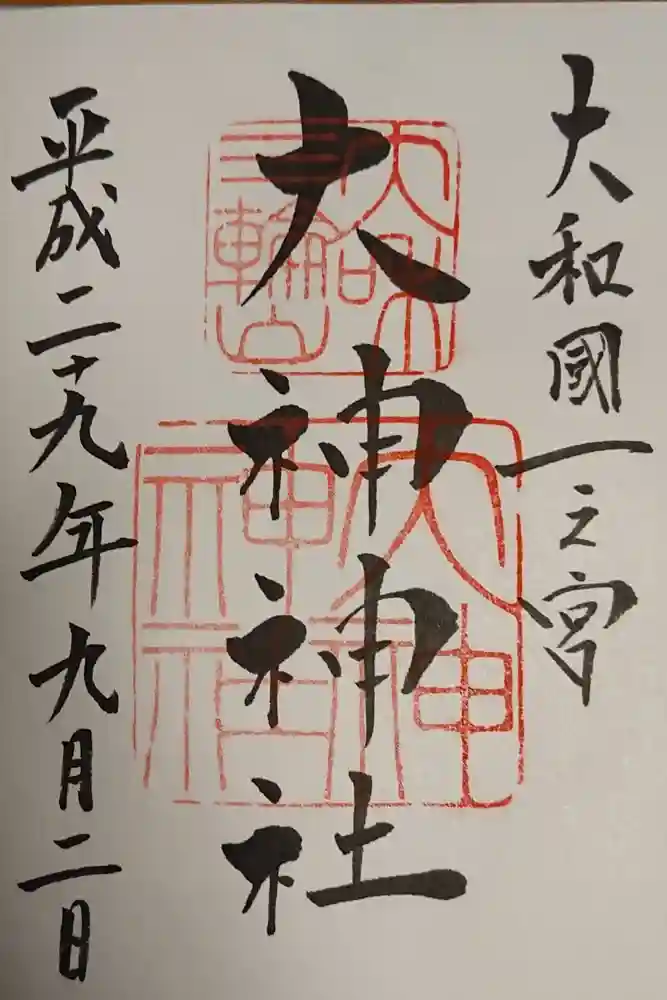 大和國一之宮
大神神社
大和
三輪山
大神
神社
平成二十九年九月二日